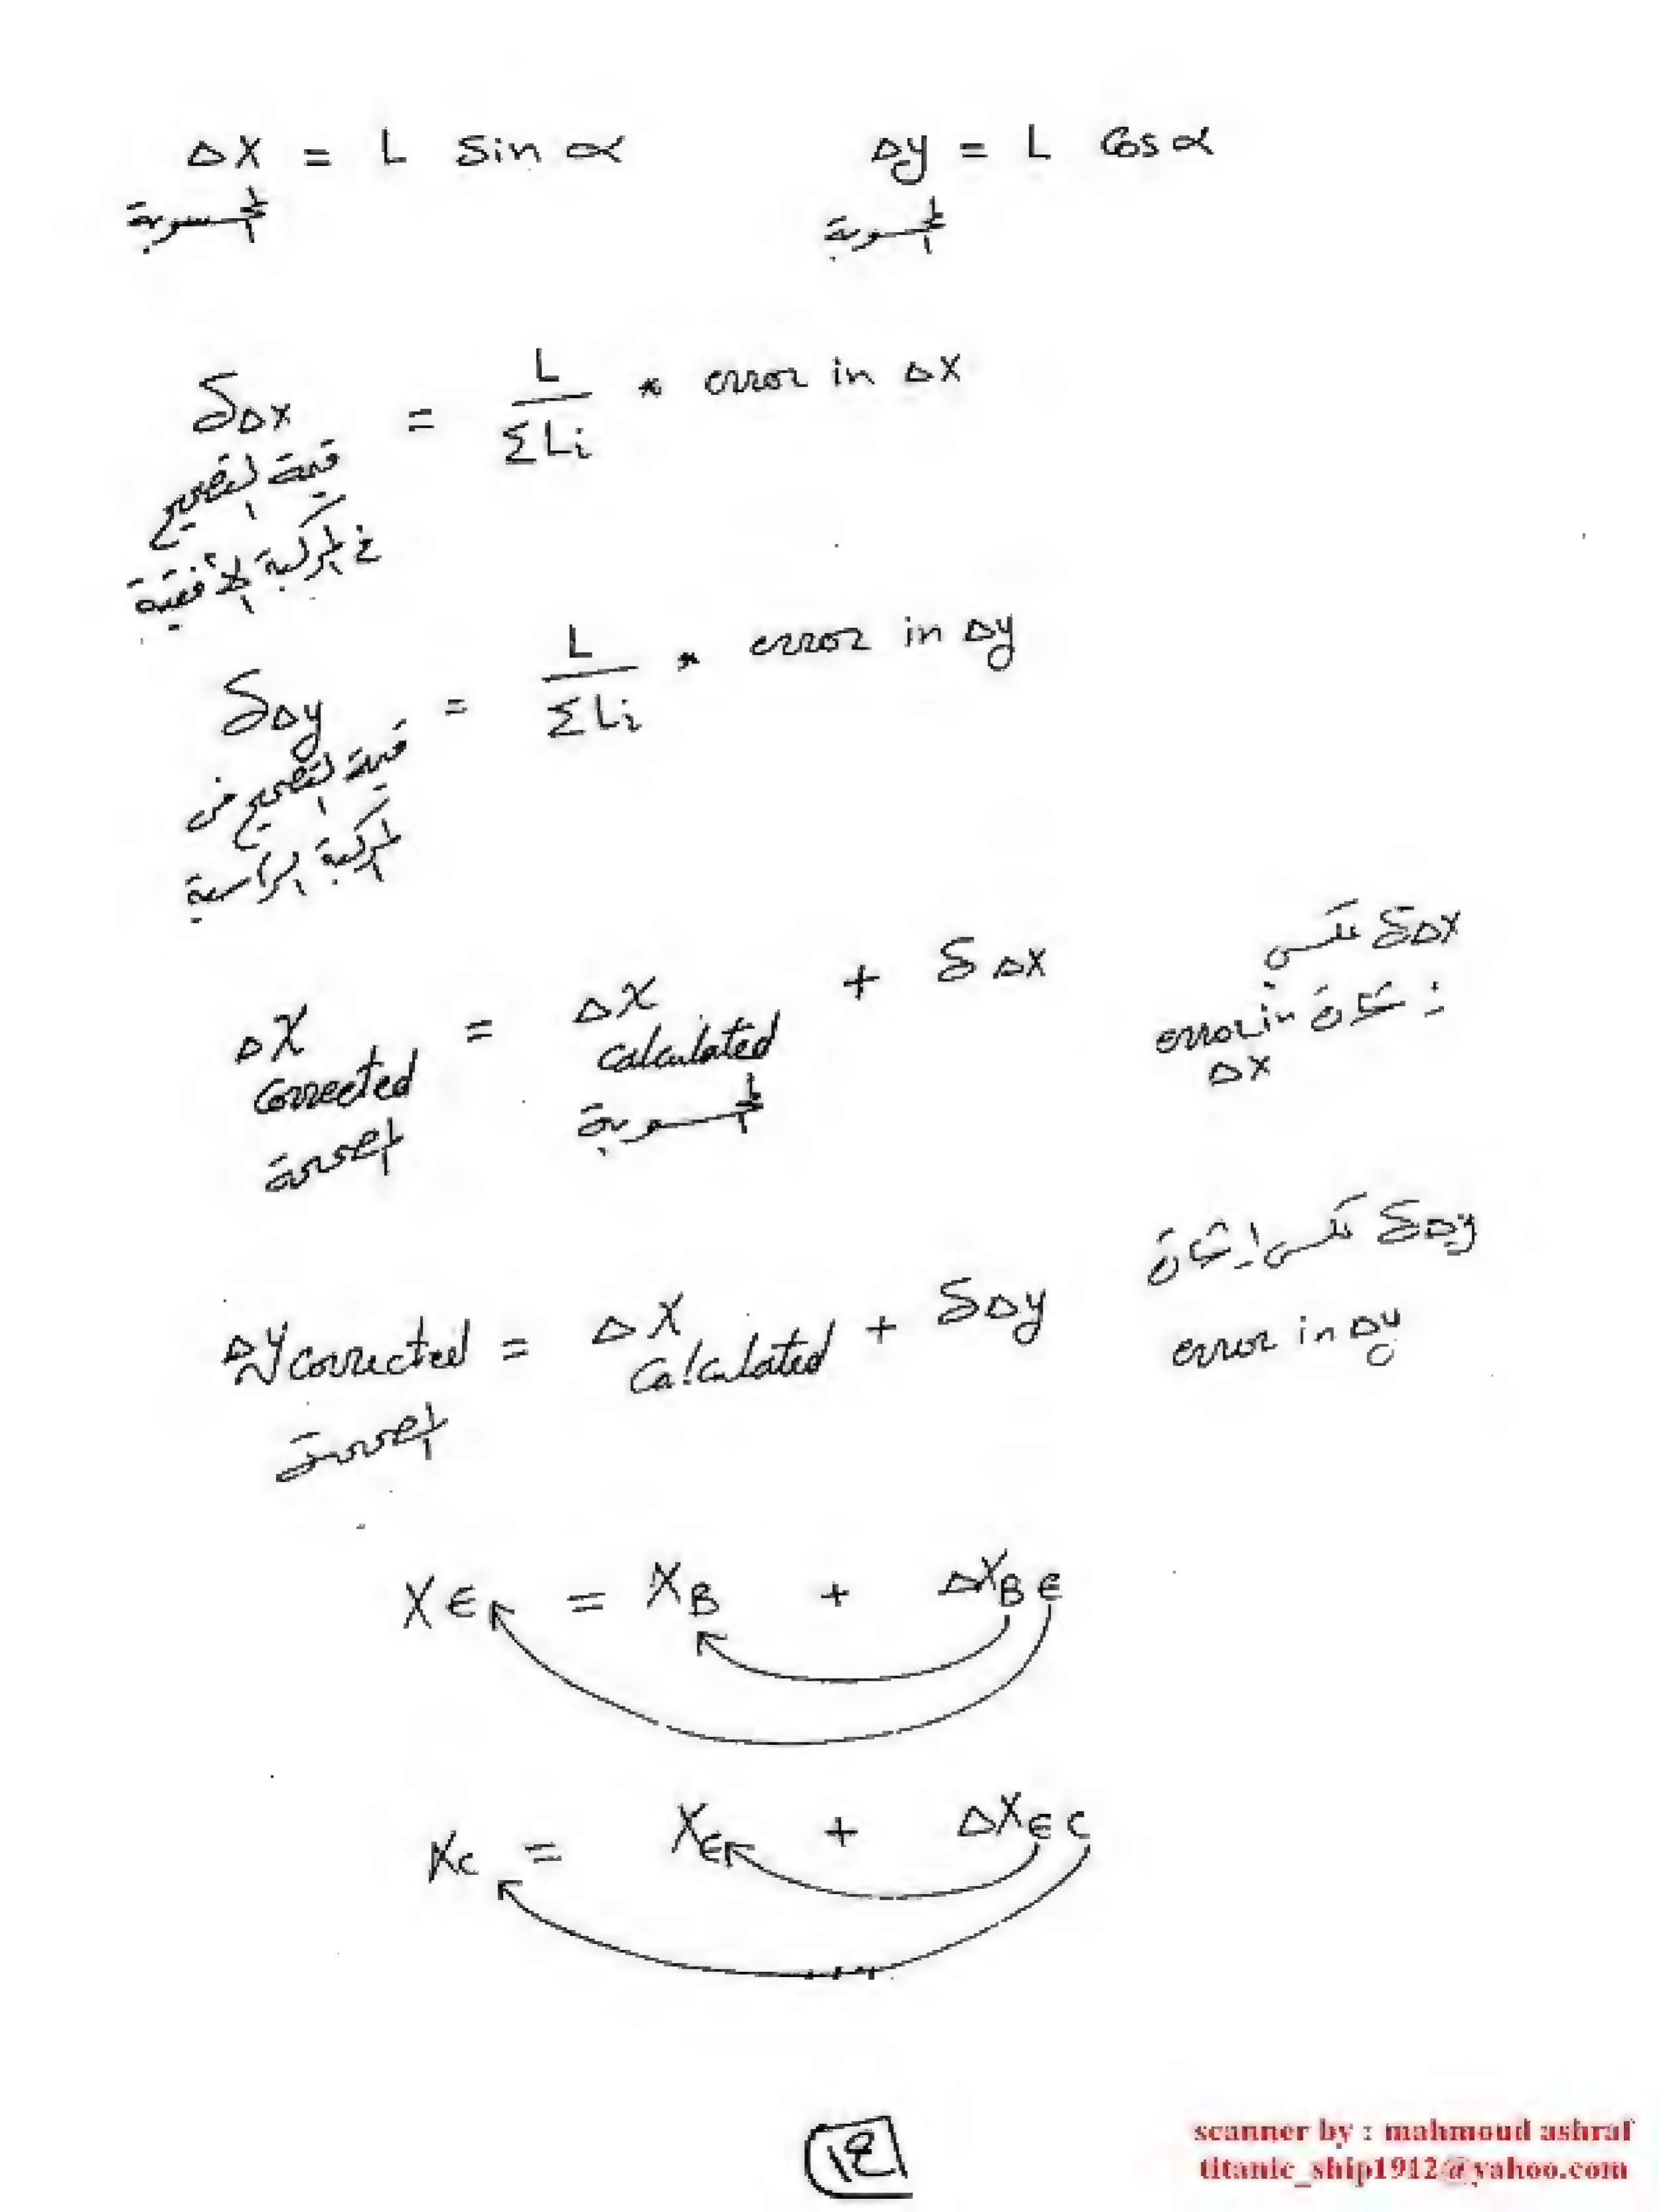 ΔX = L sin α    Δy = L cos α
المحسوبة    المحسوبة
δΔX = L / ΣLi * error in ΔX
قيمة التصحيح
في المركبة الأفقية
δΔy = L / ΣLi * error in Δy
قيمة التصحيح في
المركبة الرأسية
ΔX corrected = ΔX calculated + δΔX
المصححة    المحسوبة
δΔX عكس
إشارة error in
ΔX
Δy corrected = ΔX calculated + δΔy
المصححة
δΔy عكس إشارة
error in Δy
XE = XB + ΔXBE
Xc = XE + ΔXEC
scanner by : mahmoud ashraf
titanic_ship1912@yahoo.com